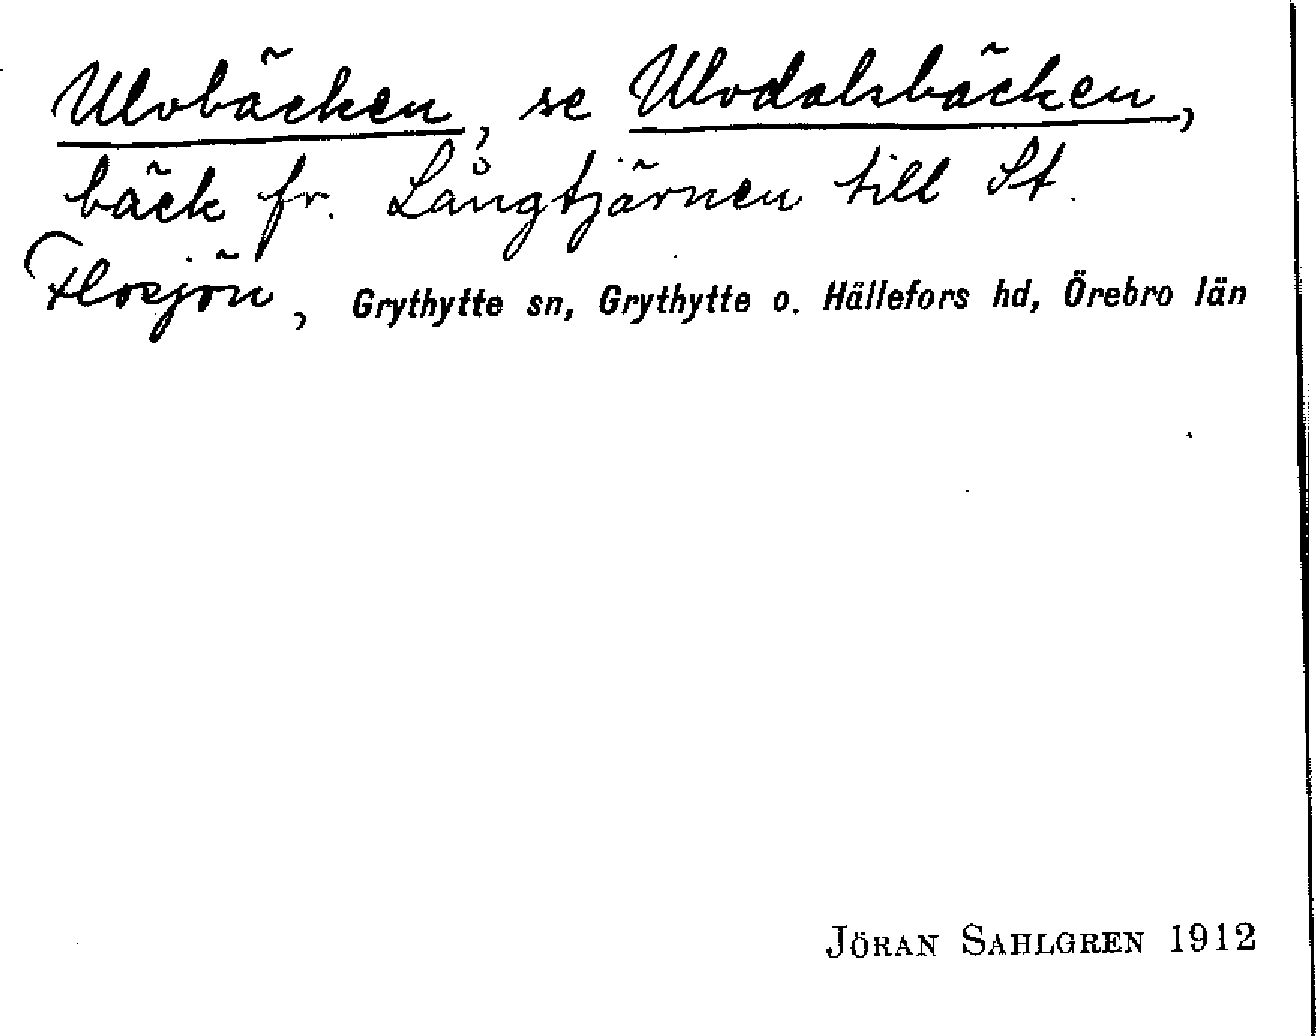 Ulvbäcken, se Ulvdalsbäcken,
bäck fr. Långtjärnen till St.
Flosjön, Grythytte sn, Grythytte o. Hällefors hd, Örebro län
JÖRAN SAHLGREN 1912